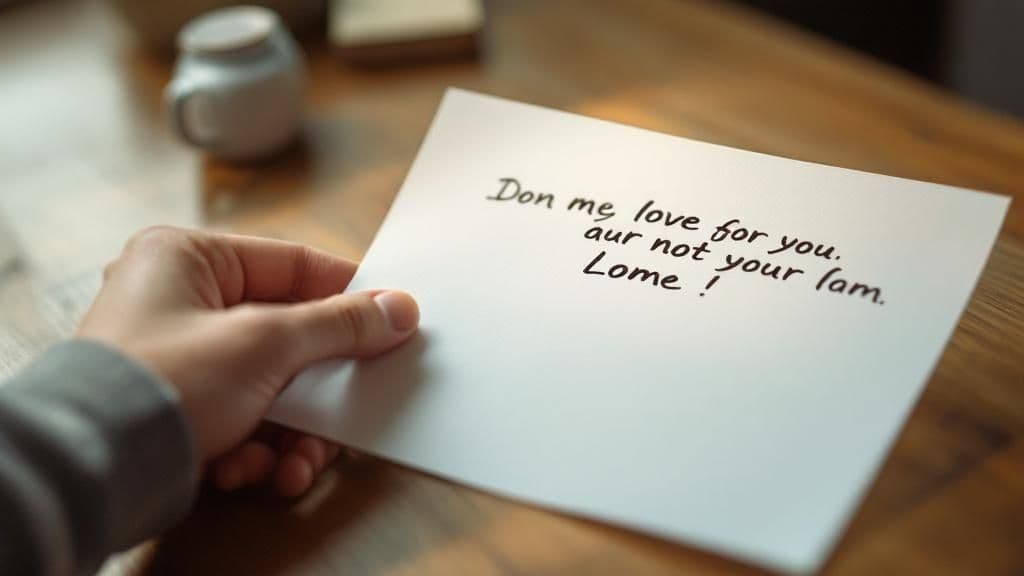 Don me, love for you.
aur not your lam.
Lome !